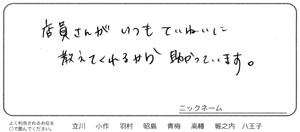 店員さんが いつも ていねいに
教えてくれるから 助かっています。
ニックネーム
よく利用されるお店を
○で囲んでください。
立川 小作 羽村 昭島 青梅 高幡 堀之内 八王子